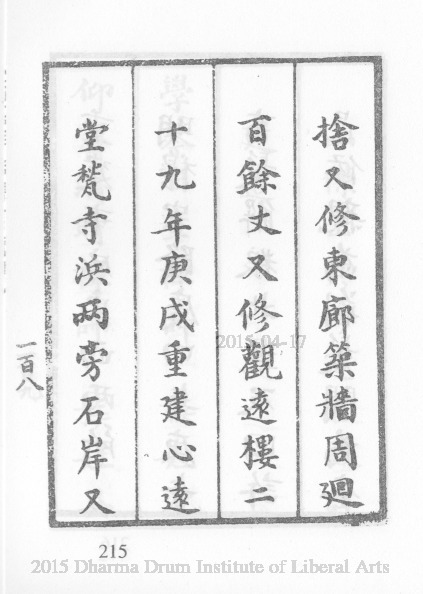 捨又修東廊築牆周廻
百餘丈又修觀遠樓二
十九年庚戌重建心遠
堂甃寺浜兩旁石岸又
一百八
2015-04-17
215
2015 Dharma Drum Institute of Liberal Arts